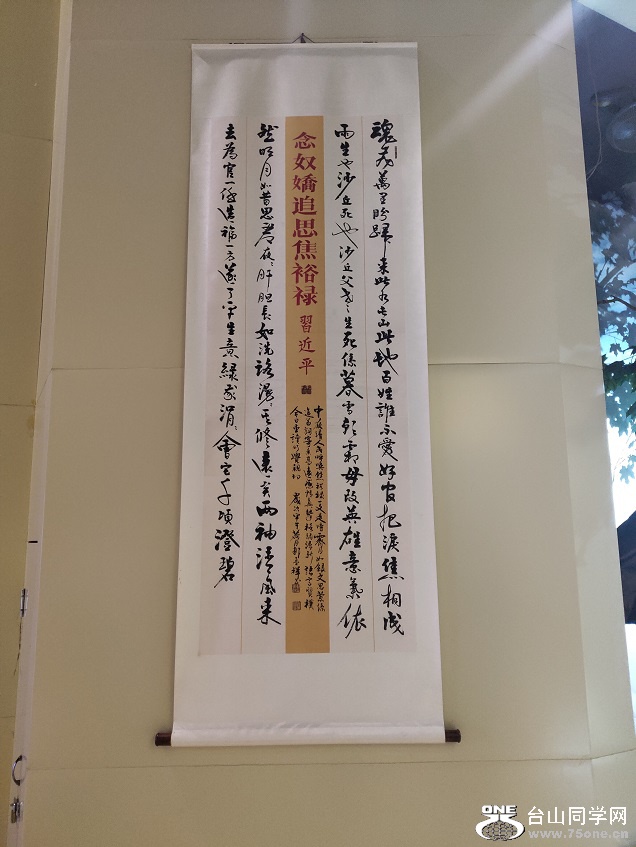 魂飛萬里盼歸來此水此山此地百姓誰不愛好官把淚焦桐成
雨生也沙丘死也沙丘父老生死係暮雪朝霜毋改英雄意氣依
念奴嬌追思焦裕禄
習近平
然明月如昔思君夜夜肝胆長如洗路漫漫其修遠矣两袖清風來
去為官一任造福一方遂了平生意緑我涓會它千頃澄碧
ONE
台山同学网
www.75one.cn